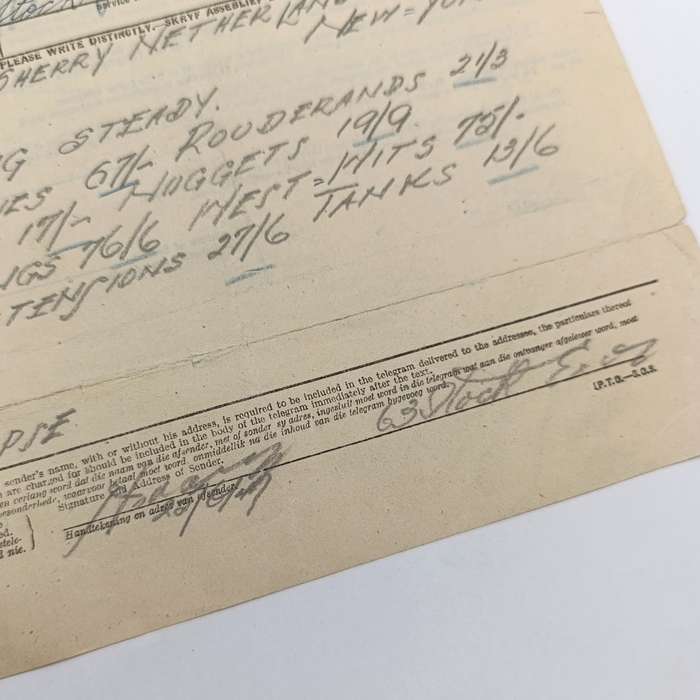 PLEASE WRITE DISTINCTLY. SKRYF ASSEBLIEF
SHERRY NETHERLAN
NEW=YOR
G STEADY.
IES 67/- ROUDERANDS 21/3
17/- NUGGETS 19/9
IGS 76/6 WEST=WITS 75/-
TENSIONS 27/6 TANKS 13/6
PSE
sender's name, with or without his address, is required to be included in the telegram delivered to the addressee, the particulars thereof
are charged for should be included in the body of the telegram immediately after the text.
verlang word dat die naam van die afsender, met of sonder sy adres, ingesluit moet word in die telegram wat aan die ontvanger afgelewer word, moet
waarvoor betaal moet word onmiddellik na die inhoud van die telegram bygevoeg word.
Signature and Address of Sender.
Handtekening en adres van afsender.
63 Stock Ex
(P.T.O.—S.O.S.
nie.